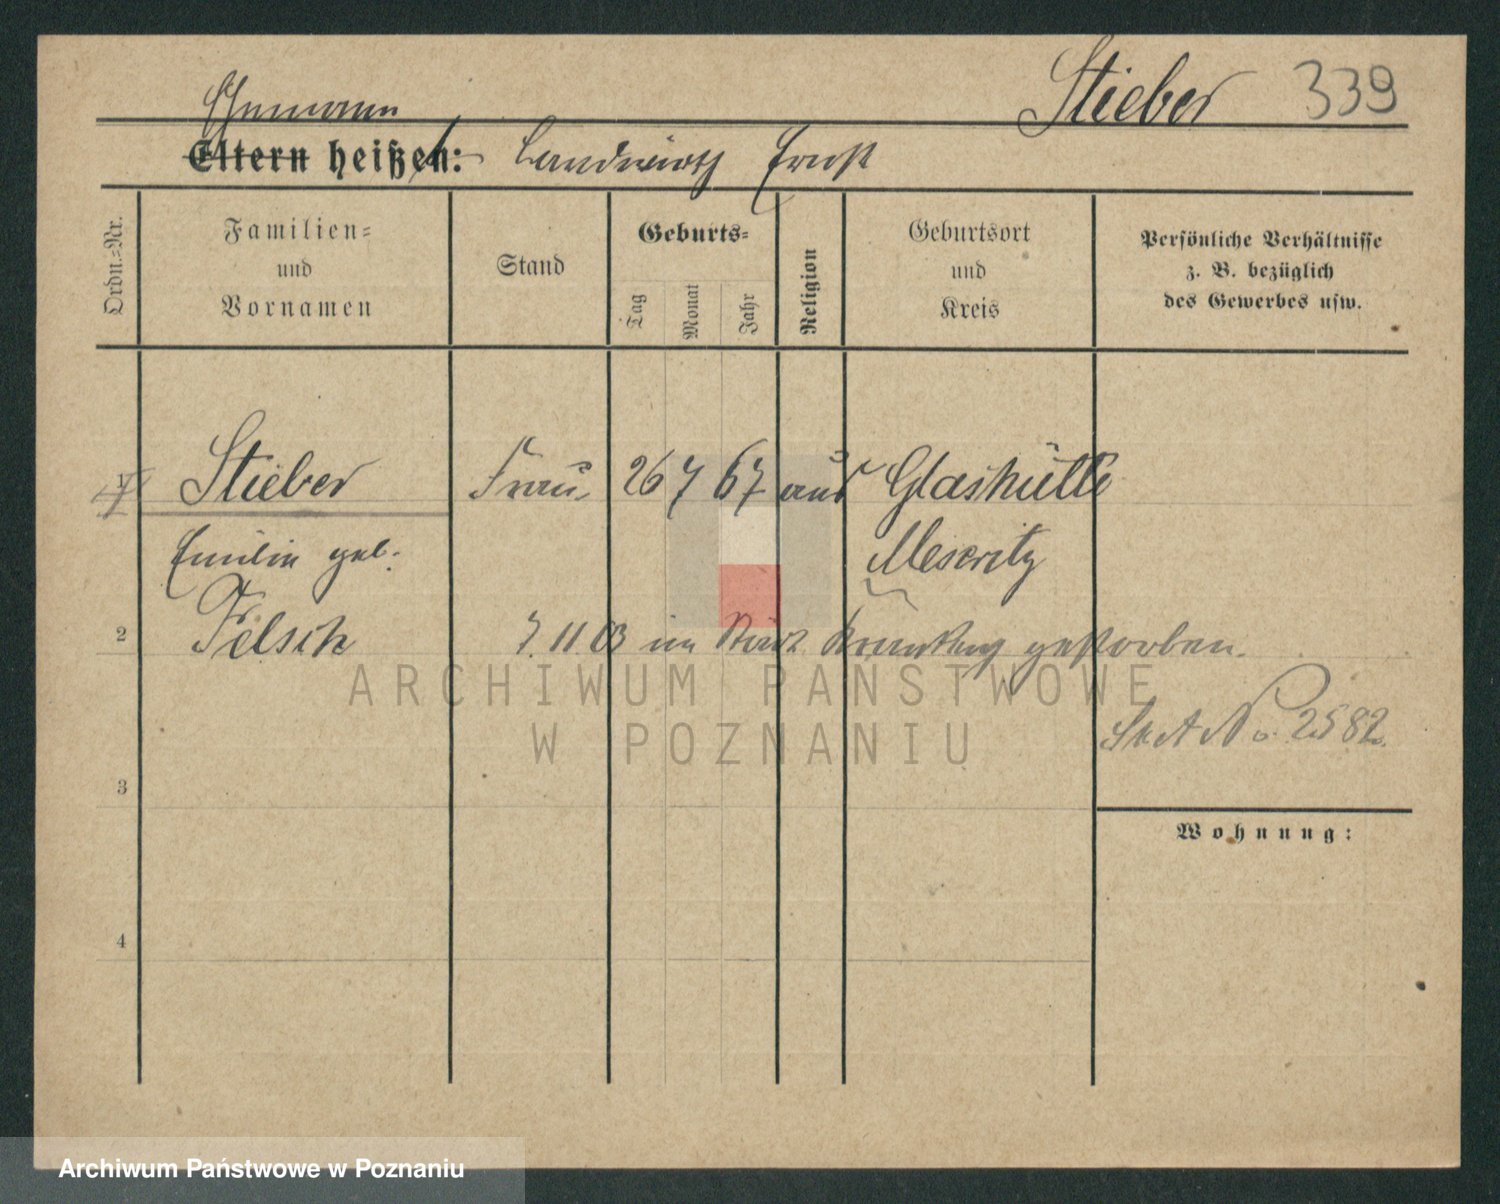 Stieber 339
Ehemann
Eltern heißen: Landwirth Ernst
Ordn.-Nr.
Familien-
und
Vornamen
Stand
Geburts-
Tag
Monat
Jahr
Religion
Geburtsort
und
Kreis
Persönliche Verhältnisse
z. B. bezüglich
des Gewerbes usw.
1 Stieber Frau 26 7 67 aus Glashütte
Emilie geb. Meseritz
2 Felsch 7. 11 03 im Stadt gestorben.
No 2582
3
Wohnung:
4
ARCHIWUM PAŃSTWOWE
W POZNANIU
Archiwum Państwowe w Poznaniu